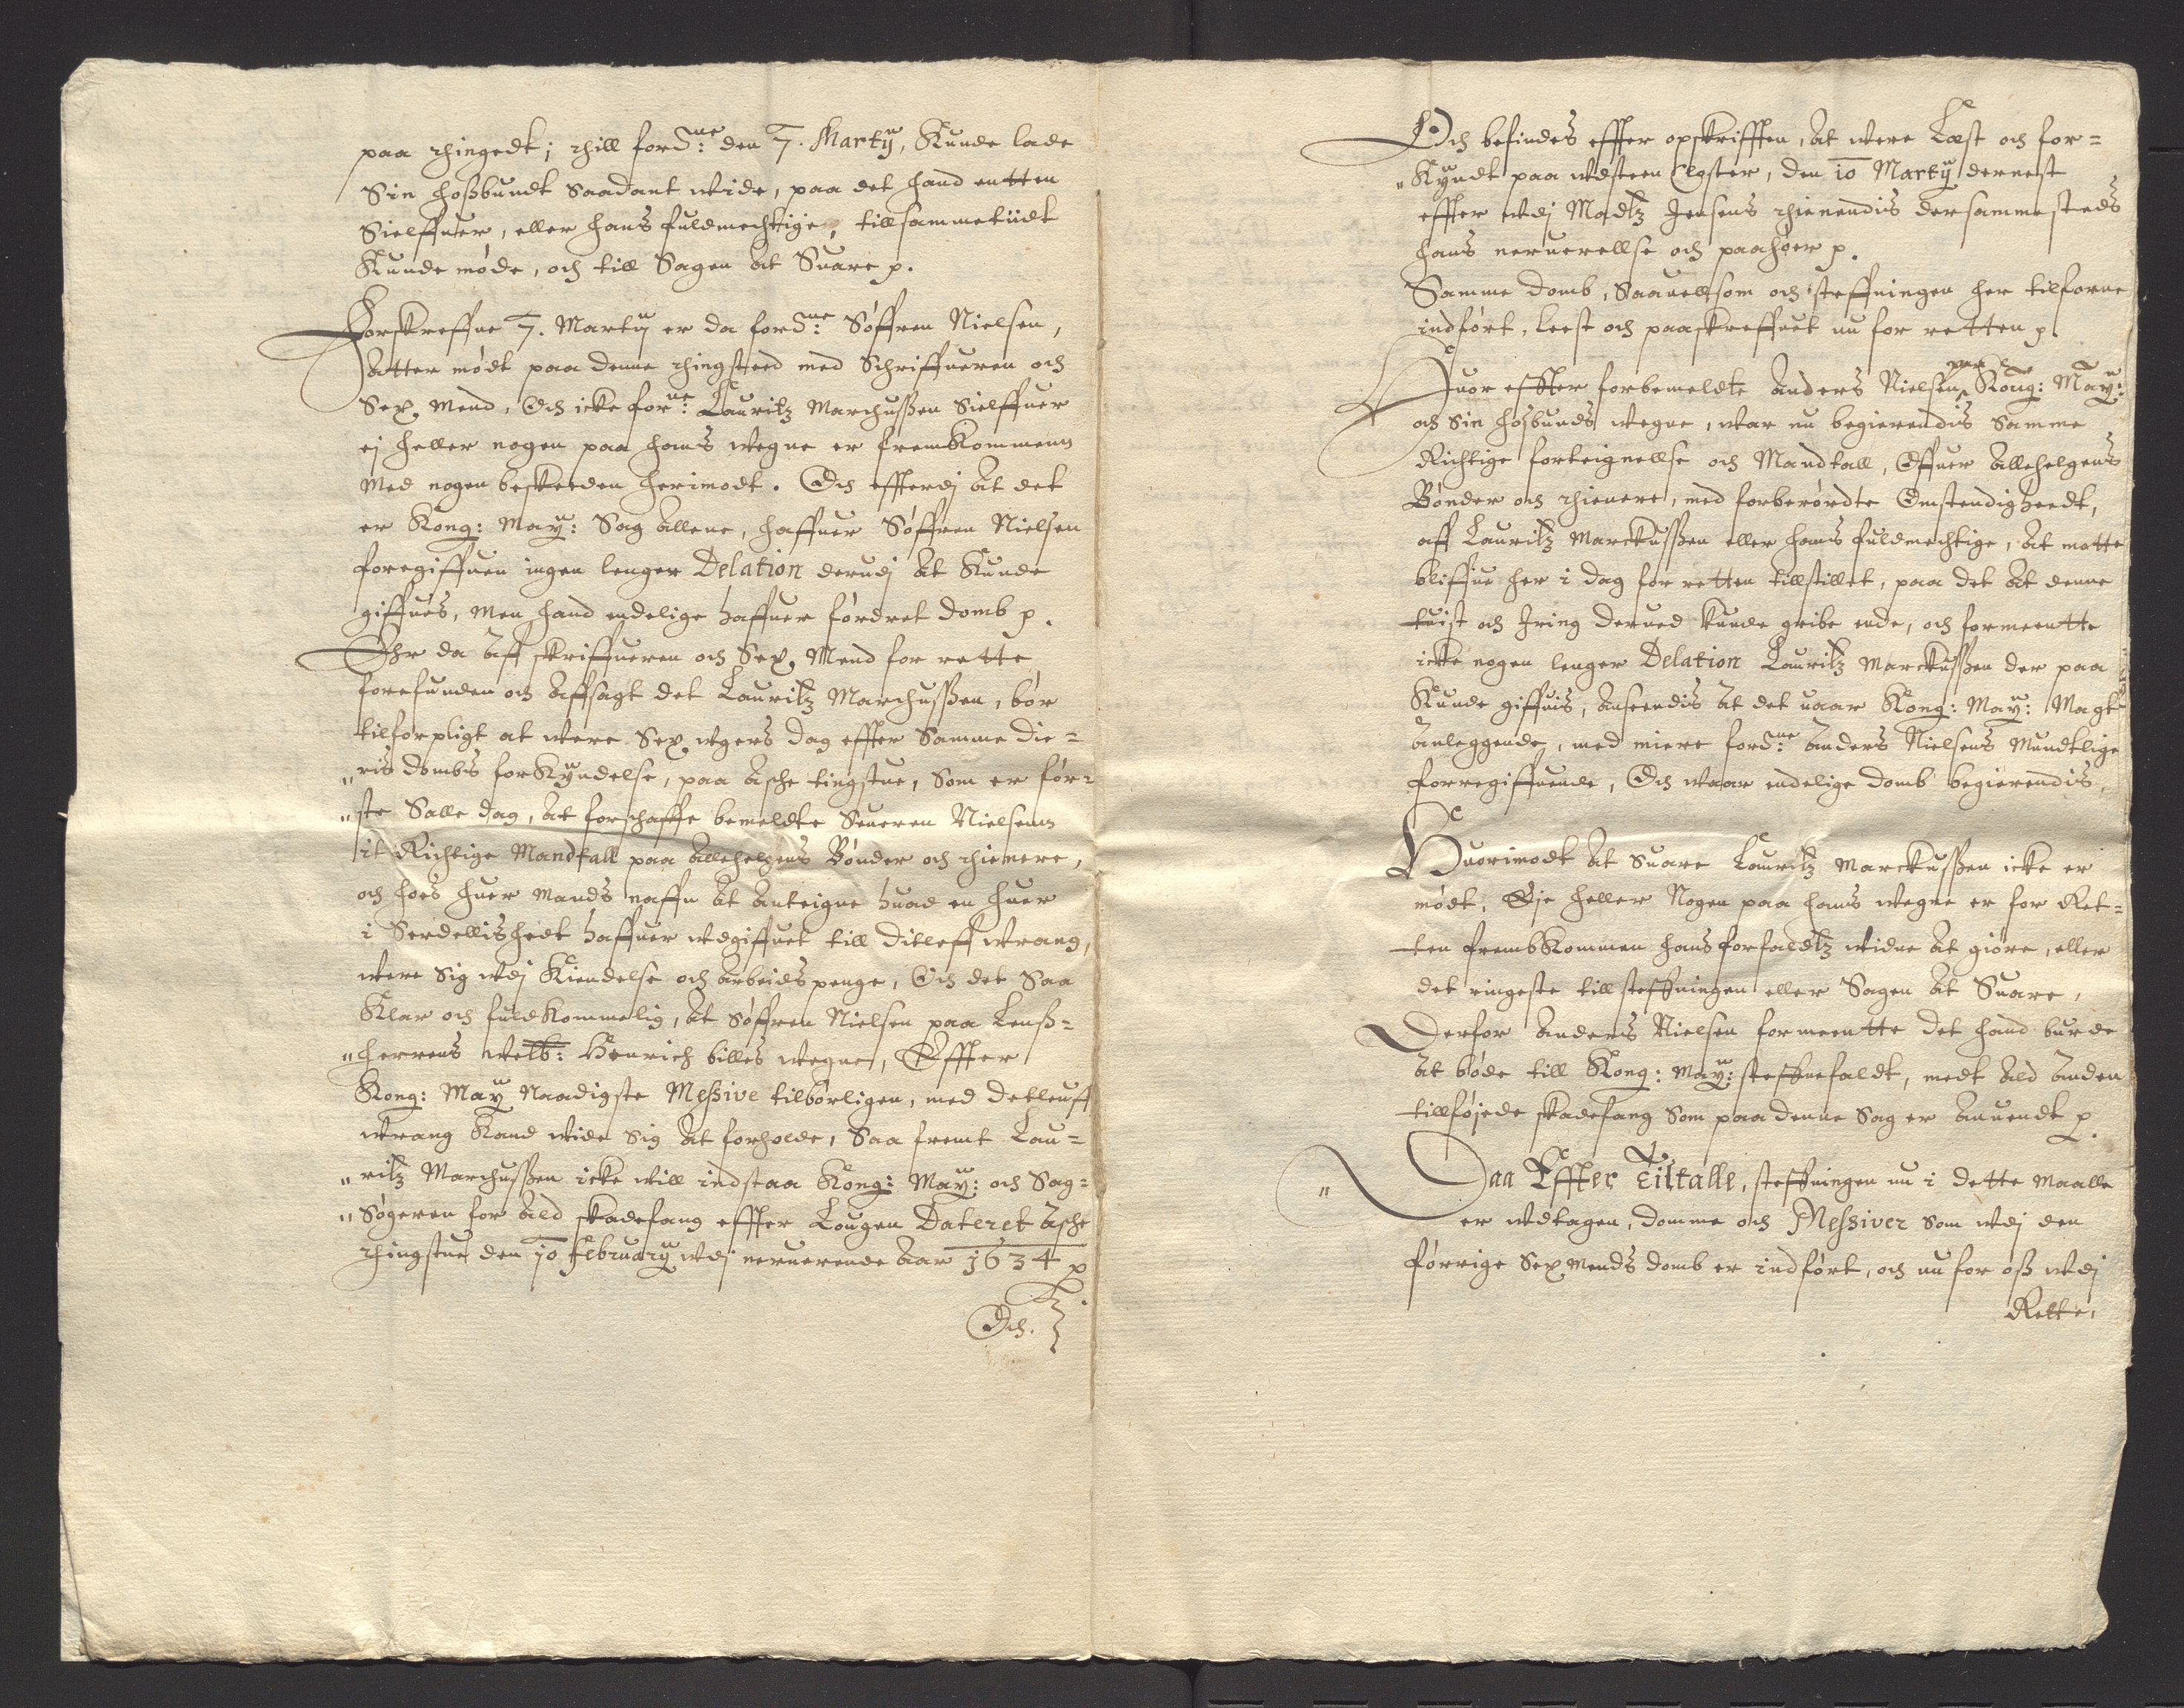 paa thingedt; thill ford:ne den 7. Martij, Kunde lade
Sin hoßbundt Saadant wide, paa det hand entten
Sielffuer, eller hans fuldmechtige, till sammetiidt
Kunde møde, och till Sagen At Suare p.
Forskreffne 7. Martij er da ford:ne Søffren Nielsen,
Atter mødt paa denne thingsteed med Schriffueren och
Sex Mend, Och icke for:ne Lauritz Marchussen Sielffuer
ej heller nogen paa hans wegne er fremkommenn
Med nogen beskeeden herimodt. Och effterdj At det
er Kong: May: Sag Allene, haffuer Søffren Nielsen
foregiffuen ingen lenger Delation derudj At Kunde
giffues, Men hand endelige haffuer fordret domb p.
Ehr da Aff skriffueren och Sex Mend for rette
forefunden och Affsagt det Lauritz Marchussen, bør
tilforpligt at were Sex wgers dag effter Samme die=
"ris dombs forkyndelse, paa Asche tingstue, Som er før=
"ste Salle dag, At forschaffe bemeldte Seueren Nielsenn
it Richtige Mandtall paa Allehelgens Bønder och thienere,
och hoes huer Mands naffn At Anteigne huad en huer
i Serdellished haffuer wdgiffuet till Ditleff wrang,
were sig wdj Kiendelse och Arbeids penge, Och det Saa
Klar och fuldkommelig, At Søffren Nielsen paa Lenß=
"herrens welb: Henrich billes wegne, Effter
Kong: May Naadigste Messive tilbørligen, med Detleuff
wrang Kand wide Sig At forholde, Saa fremt Lau=
"ritz Marchussen icke will indstaa Kong: May: och Sag=
"Søgeren for Ald skadefang effter Lougen Dateret Asche
thingstue den 10 February wdj neruerende Aar 1634 p
Och.
Och befindes effter opskrifften, At were Læst och for=
"Kyndt paa wdsteen Closter, den 10 Martij dernest
effter wdj Madtz Jensens thienendis dersammesteds
hans neruerellse och paahøer p.
Samme domb, Saauellsom och steffningen her tilforne
indført, leest och paaskreffuet nu for retten p
Huor effter forbemeldte Anders Nielsen paa Kong: May:
och Sin hosbunds wegne, war nu begierendis Samme
Richtige forteignellse och Mandtall, Offuer Allehelgens
Bønder och thienere, med forberørdte Omstendigheedt,
aff Lauritz Marckussen eller hans fuldmechtige, At motte
bliffue her i dag for retten tillstillet, paa det At denne
tuist och Iring derued kunde gribe ende, och formeente
icke nogen lenger Delation Lauritz Marckussen der paa
Kunde giffuis, Anseendis At det uaar Kong: May: Magt
Anleggende, med miere ford:ne Anders Nielsens Mundtlige
forregiffuende, Och waar endelige domb begierendis,
Huorimodt At Suare Lauritz Marckussen icke er
mødt, Eje heller Nogen paa hans wegne er for Ret=
ten frembkommen hans forfaldtz widne At giøre, eller
det ringeste till steffningen eller Sagen At Suare,
Derfor Anders Nielsen formeente det hand burde
At bøde till Kong: May: steffnefaldt, medt Ald Anden
tillføjede skadefang Som paa denne Sag er Anuendt p.
"Daa Effter Tiltalle, steffningen nu i dette Maalle
er wdtagen, domme och Messiver Som wdj den
forrige Sex mends domb er indført, och nu for oß wdj
Rette,